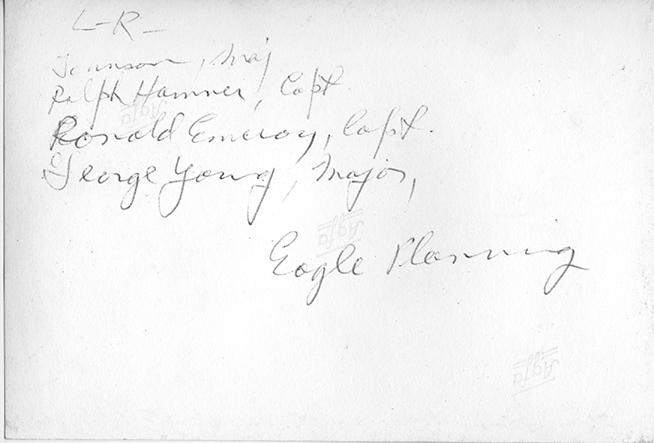 L-R-
Johnson, Maj
Ralph Hamner, Capt.
Ronald Emeroy, Capt.
George Young, Major,
Eagle Planning
Agfa
Agfa
Agfa